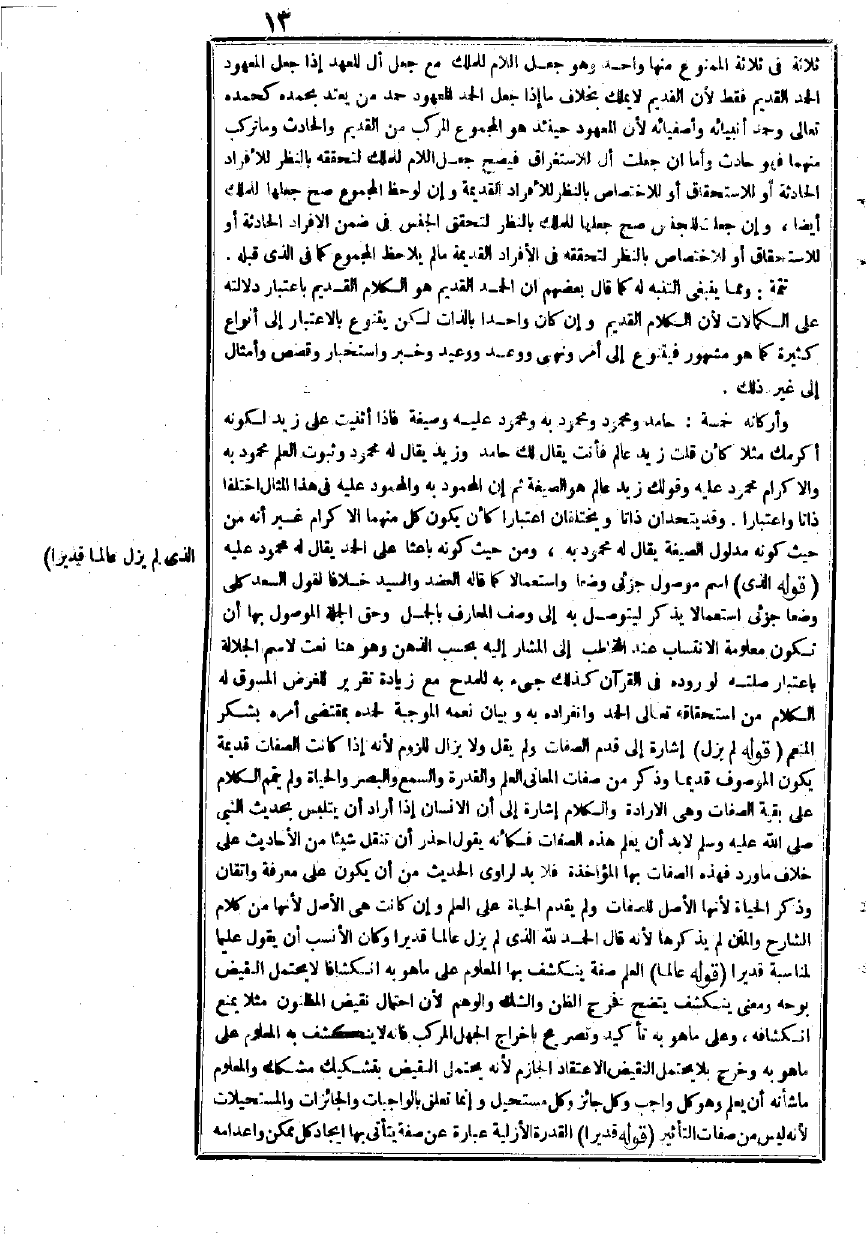 ١٣
ثلاثة فى ثلاثة الممنوع منها واحد وهو جعل اللام للملك مع جعل أل للعهد إذا جعل المعهود
الحمد القديم فقط لأن القديم لايملك بخلاف ماإذا جعل الحمد المعهود حمد من يعتد بحمده كحمده
تعالى وحمد أنبيائه وأصفيائه لأن المعهود حينئذ هو المجموع المركب من القديم والحادث وماتركب
منهما فهو حادث وأما ان جعلت أل للاستغراق فيصح جعل اللام للملك لتحققه بالنظر للأفراد
الحادثة أو للاستحقاق أو للاختصاص بالنظر للأفراد القديمة وإن لوحظ المجموع صح جعلها للملك
أيضا ، وإن جعلت للجنس صح جعلها للملك بالنظر لتحقق الجنس فى ضمن الافراد الحادثة أو
للاستحقاق أو للاختصاص بالنظر لتحققه فى الأفراد القديمة مالم يلاحظ المجموع كما فى الذى قبله .
تتمة : ومما ينبغى التنبه له كما قال بعضهم ان الحمد القديم هو الكلام القديم باعتبار دلالته
على الكمالات لأن الكلام القديم وإن كان واحدا بالذات لكن يتنوع بالاعتبار إلى أنواع
كثيرة كما هو مشهور فيتنوع إلى أمر ونهى ووعد ووعيد وخبر واستخبار وقصص وأمثال
إلى غير ذلك .
وأركانه خمسة : حامد ومحمود ومحمود به ومحمود عليه وصيغة فاذا أثنيت على زيد لكونه
أكرمك مثلا كأن قلت زيد عالم فأنت يقال لك حامد وزيد يقال له محمود وثبوت العلم محمود به
والاكرام محمود عليه وقولك زيد عالم هو الصيغة ثم إن المحمود به والمحمود عليه فى هذا المثال اختلفا
ذاتا واعتبارا . وقد يتحدان ذاتا ويختلفان اعتبارا كأن يكون كل منهما الاكرام غير أنه من
حيث كونه مدلول الصيغة يقال له محمود به ، ومن حيث كونه باعثا على الحمد يقال له محمود عليه
الذى لم يزل عالما قديرا)
( قوله الذى ) اسم موصول جزئى وضعا واستعمالا كما قاله العضد والسيد خلافا لقول السعد كلى
وضعا جزئى استعمالا يذكر ليتوصل به إلى وصف المعارف بالجمل وحق الجملة الموصول بها أن
تكون معلومة الانتساب عند المخاطب إلى المشار إليه بحسب الذهن وهو هنا نعت لاسم الجلالة
باعتبار صلته لوروده فى القرآن كذلك جىء به للمدح مع زيادة تقرير للغرض المسوق له
الكلام من استحقاقه تعالى الحمد وانفراده به وبيان نعمه الموجبة لحمده بمقتضى أمره بشكر
المنعم ( قوله لم يزل ) إشارة إلى قدم الصفات ولم يقل ولا يزال للزوم لأنه إذا كانت الصفات قديمة
يكون الموصوف قديما وذكر من صفات المعانى العلم والقدرة والسمع والبصر والحياة ولم يتمم الكلام
على بقية الصفات وهى الارادة والكلام إشارة إلى أن الانسان إذا أراد أن يتلبس بحديث النبى
صلى الله عليه وسلم لابد أن يعلم هذه الصفات فكأنه يقول احذر أن تنقل شيئا من الأحاديث على
خلاف ماورد فهذه الصفات بها المؤاخذة فلا بد لراوى الحديث من أن يكون على معرفة واتقان
وذكر الحياة لأنها الأصل للصفات ولم يقدم الحياة على العلم وإن كانت هى الأصل لأنها من كلام
الشارح والمتن لم يذكرها لأنه قال الحمد لله الذى لم يزل عالما قديرا وكان الأنسب أن يقول عليما
لمناسبة قديرا ( قوله عالما ) العلم صفة ينكشف بها المعلوم على ماهو به انكشافا لايحتمل النقيض
بوجه ومعنى ينكشف يتضح فخرج الظن والشك والوهم لأن احتمال نقيض المظنون مثلا يمنع
انكشافه ، وعلى ماهو به تأكيد وتصريح باخراج الجهل المركب فانه لاينكشف به المعلوم على
ماهو به وخرج بلايحتمل النقيض الاعتقاد الجازم لأنه يحتمل النقيض بتشكيك مشكك والمعلوم
ماشأنه أن يعلم وهو كل واجب وكل جائز وكل مستحيل وإنما تعلق بالواجبات والجائزات والمستحيلات
لأنه ليس من صفات التأثير ( قوله قديرا ) القدرة الأزلية عبارة عن صفة يتأتى بها ايجاد كل ممكن واعدامه